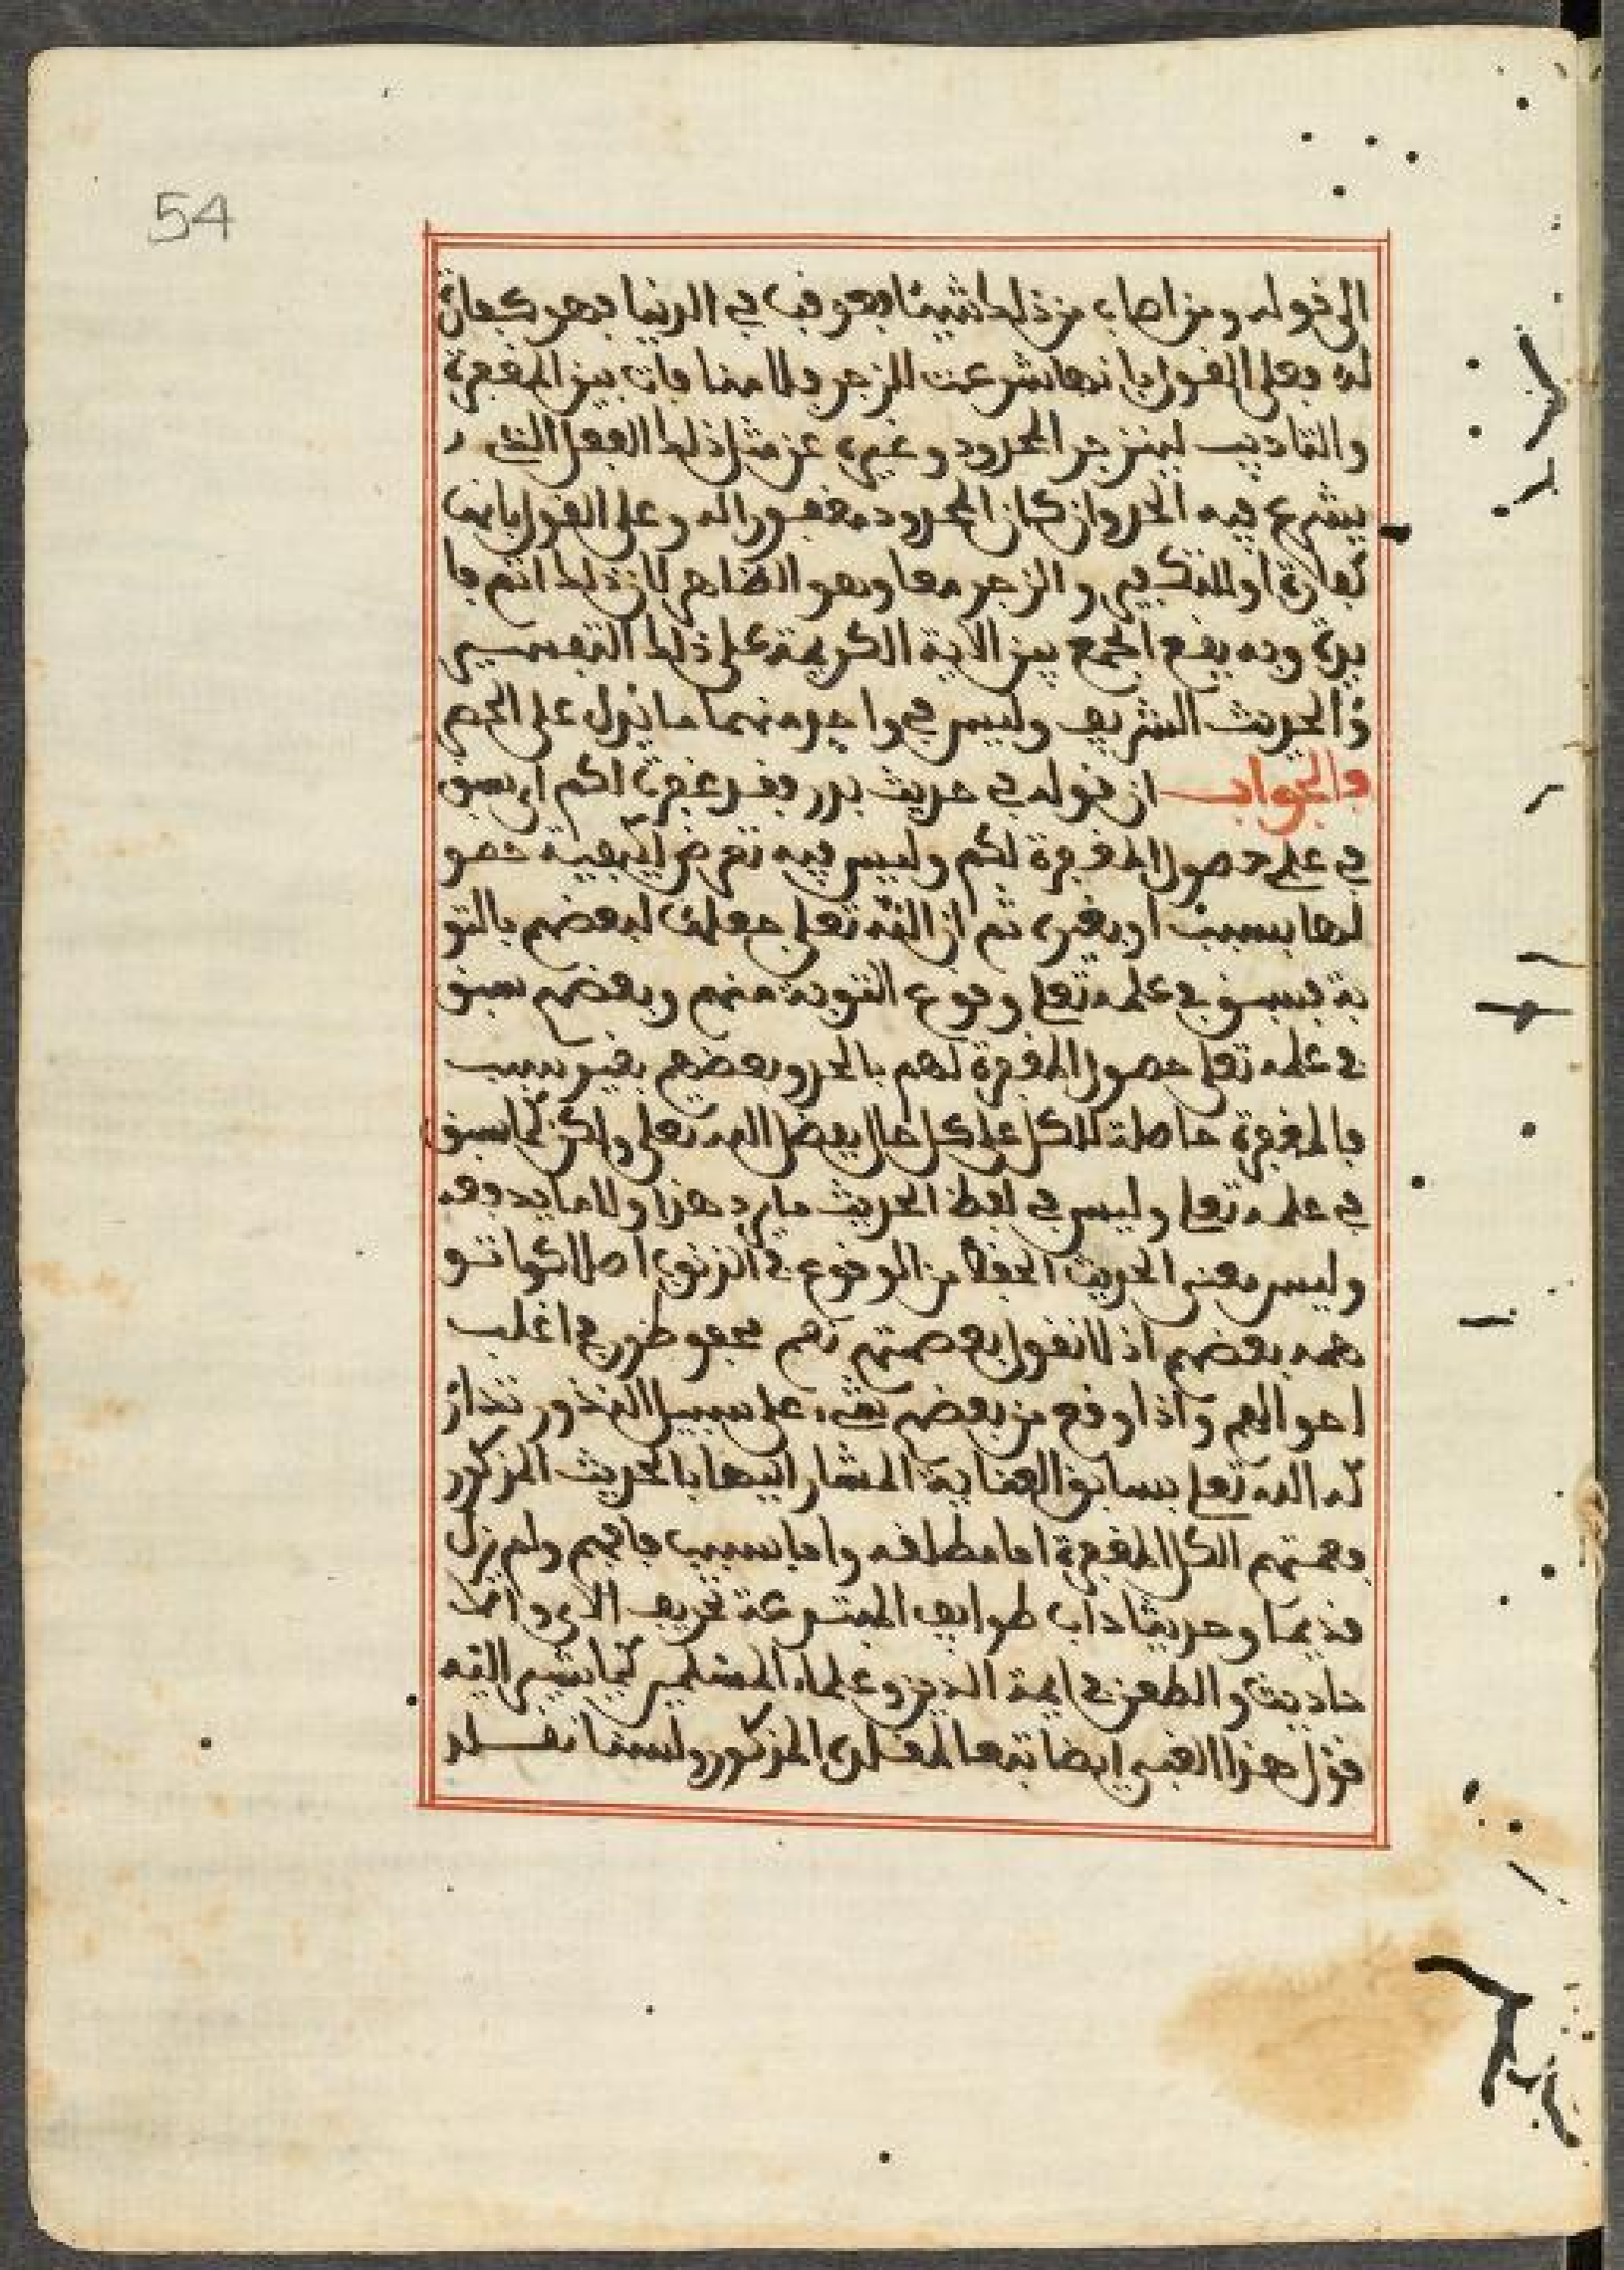 54
الى قوله ومن اصاب من ذلك شيئا فعوقب في الدنيا فهو كفارة
له وعلى القول بانها شرعت للزجر ولا منافات بين المغفرة
والتاديب لينزجر المحدود وغيره عن مثل ذلك الفعل الذي
يشرع فيه الحد وان كان المحدود مغفورا له وعلى القول بانها
كفارة او للتكفير والزجر معا وهو الظاهر لان ذلك اتم فا
يدة وبه يقع الجمع بين الاية الكريمة على ذلك التفسير
والحديث الشريف وليس في واحد منهما ما يدل على الحصر
والجواب ان قوله في حديث بدر وقد غفرت لكم اي سبق
في علمي حصول المغفرة لكم وليس فيه تعرض لكيفية حصو
لها بسبب او بغيره ثم ان الله تعلى جعلها لبعضهم بالتو
بة فسبق في علمه تعلى وقوع التوبة منهم وبعضهم سبق
في علمه تعلى حصول المغفرة لهم بالحد وبعضهم بغير سبب
فالمغفرة حاصلة للكل على كل حال بفضل الله تعلى ولكن كما سبق
في علمه تعلى وليس في لفظ الحديث ما يرد هذا ولا ما يدفعه
وليس معنى الحديث الحفظ من الوقوع في الذنوب اصلا كما تو
همه بعضهم اذ لا نقول بعصمتهم نعم محفوظون في اغلب
احوالهم واذا وقع من بعضهم شيء على سبيل الندور تدار
كه الله تعلى بسابق العناية المشار اليها بالحديث المذكور
فعمتهم الكل المغفرة اما مطلقه واما بسبب فافهم ولم يزل
قديما وحديثا داب طوايف المبتدعة تحريف الاي والا
حاديث والطعن في ايمة الدين وعلماء المسلمين كما يشير اليه
قول هذا الغبي ايضا تبعا لمقلده المذكور ولسنا نقلد